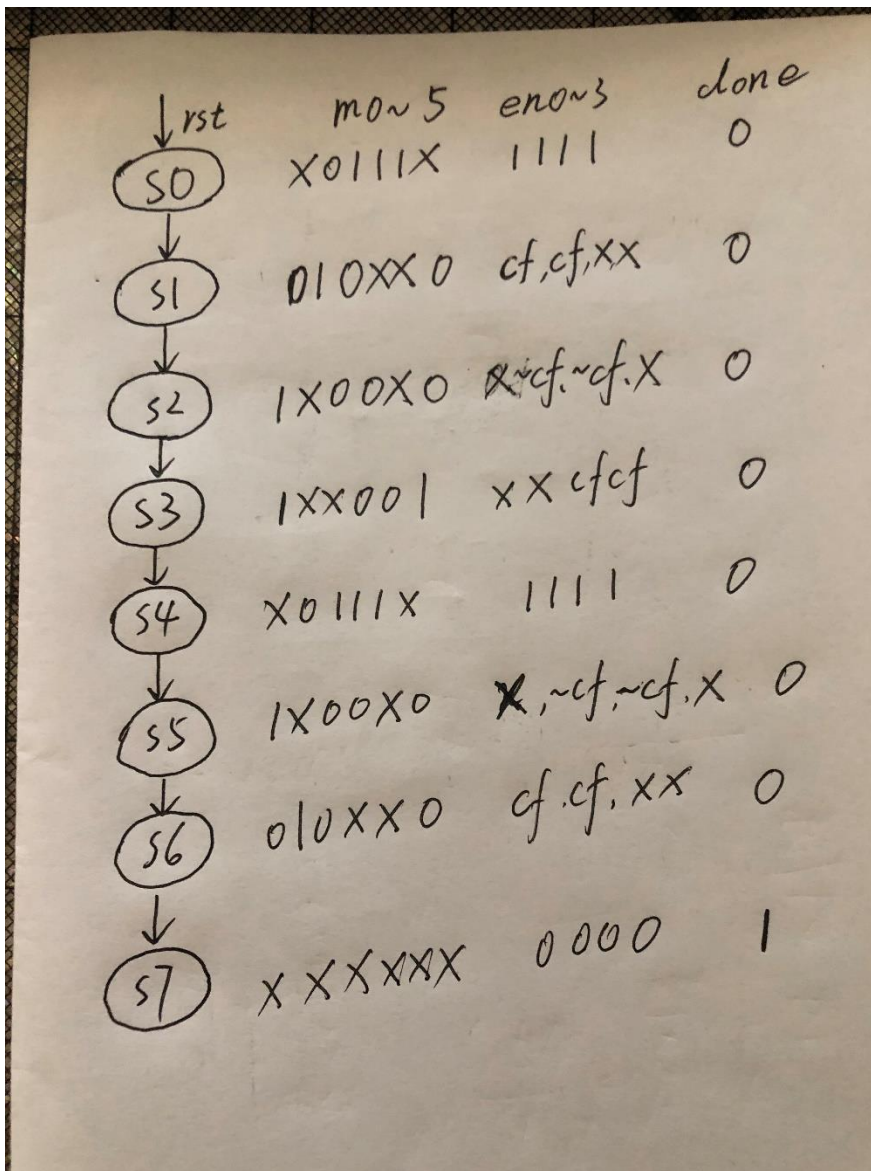 rst m0~5 en0~3 done
S0 X0111X 1111 0
S1 010XX0 cf,cf,XX 0
S2 1X00X0 X~cf.~cf.X 0
S3 1XX001 XX cfcf 0
S4 X0111X 1111 0
S5 1X00X0 X,~cf,~cf.X 0
S6 010XX0 cf.cf.XX 0
S7 XXXXXX 0000 1